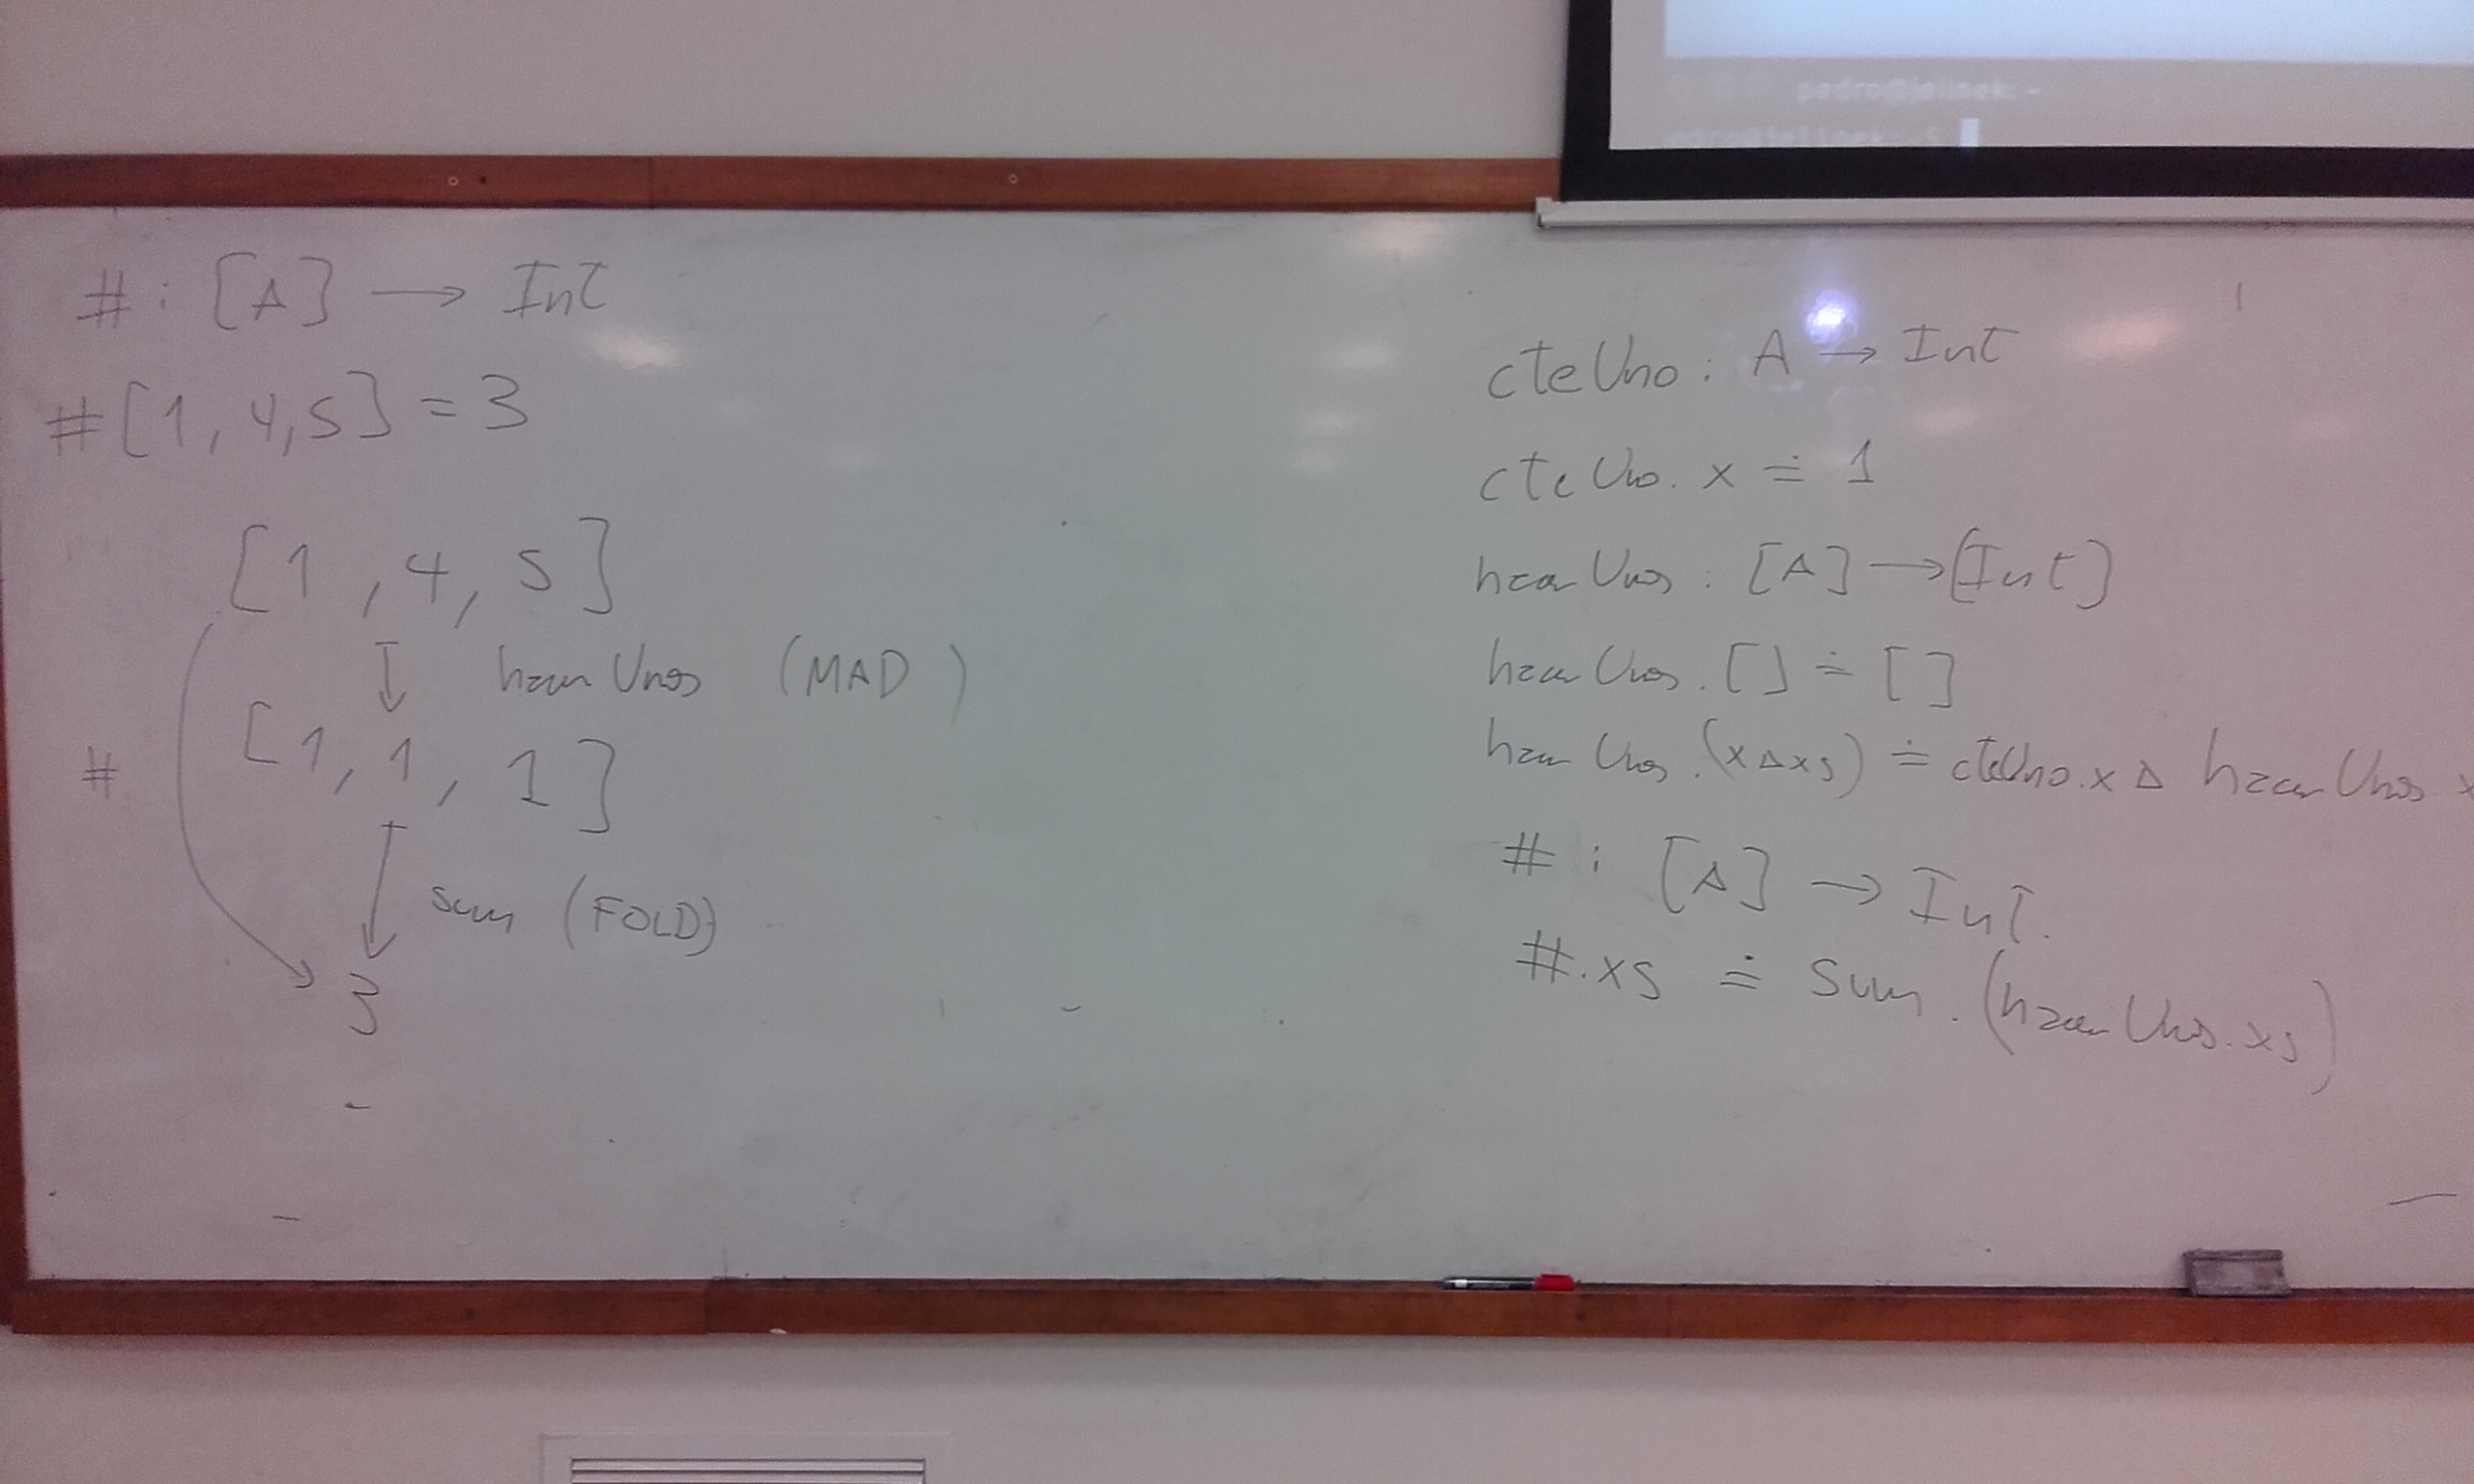 pedro@jelinek: ~
# : [A] → Int
#[1, 4, 5] = 3
[1, 4, 5]
hacer Unos (MAD)
[1, 1, 1]
#
sum (FOLD)
3
cteUno : A → Int
cteUno. x ≐ 1
hacer Unos : [A] → [Int]
hacer Unos . [] ≐ []
hacer Unos . (x▵xs) ≐ cteUno.x ▵ hacer Unos x
# : [A] → Int.
#.xs ≐ sum . (hacer Unos.xs)